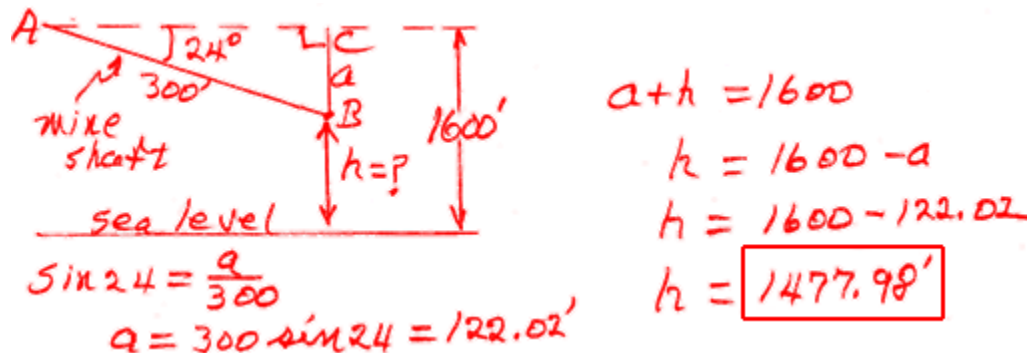 A
24°
C
300'
a
B
mine
shaft
h=?
1600'
sea level
sin 24 = a/300
a = 300 sin 24 = 122.02'
a+h = 1600
h = 1600 - a
h = 1600 - 122.02
h = 1477.98'